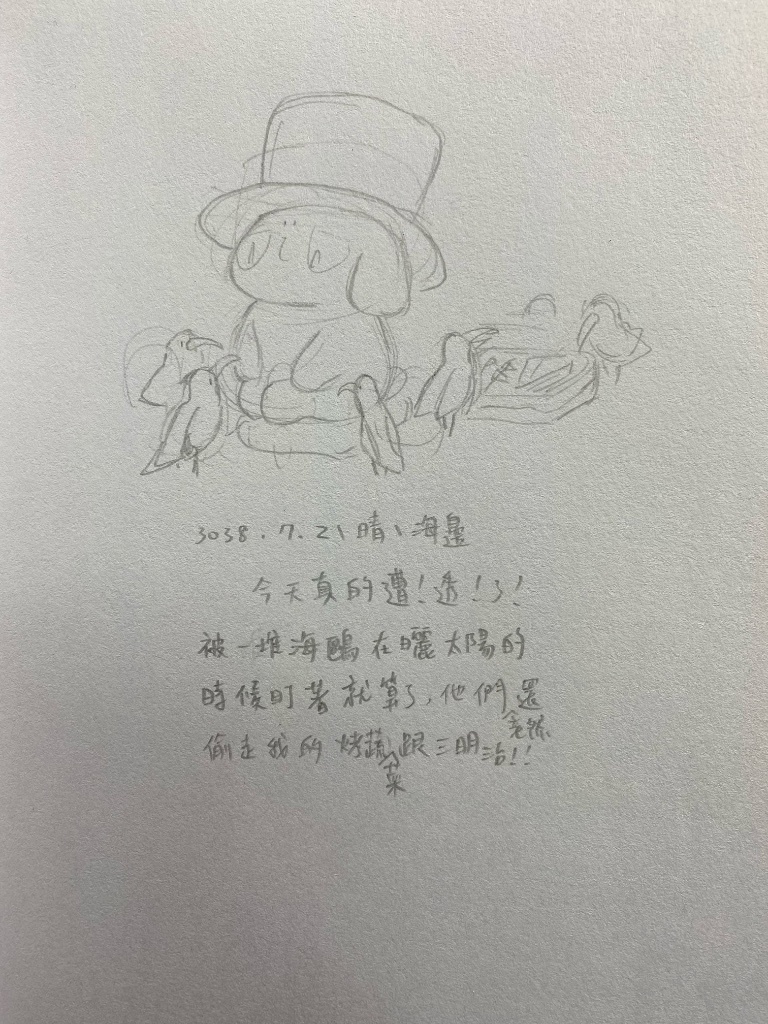 3038.7.21晴、海邊
今天真的遭!透!了!
被一堆海鷗在曬太陽的
時候盯著就算了,他們還竟然
偷走我的烤蔬菜跟三明治!!